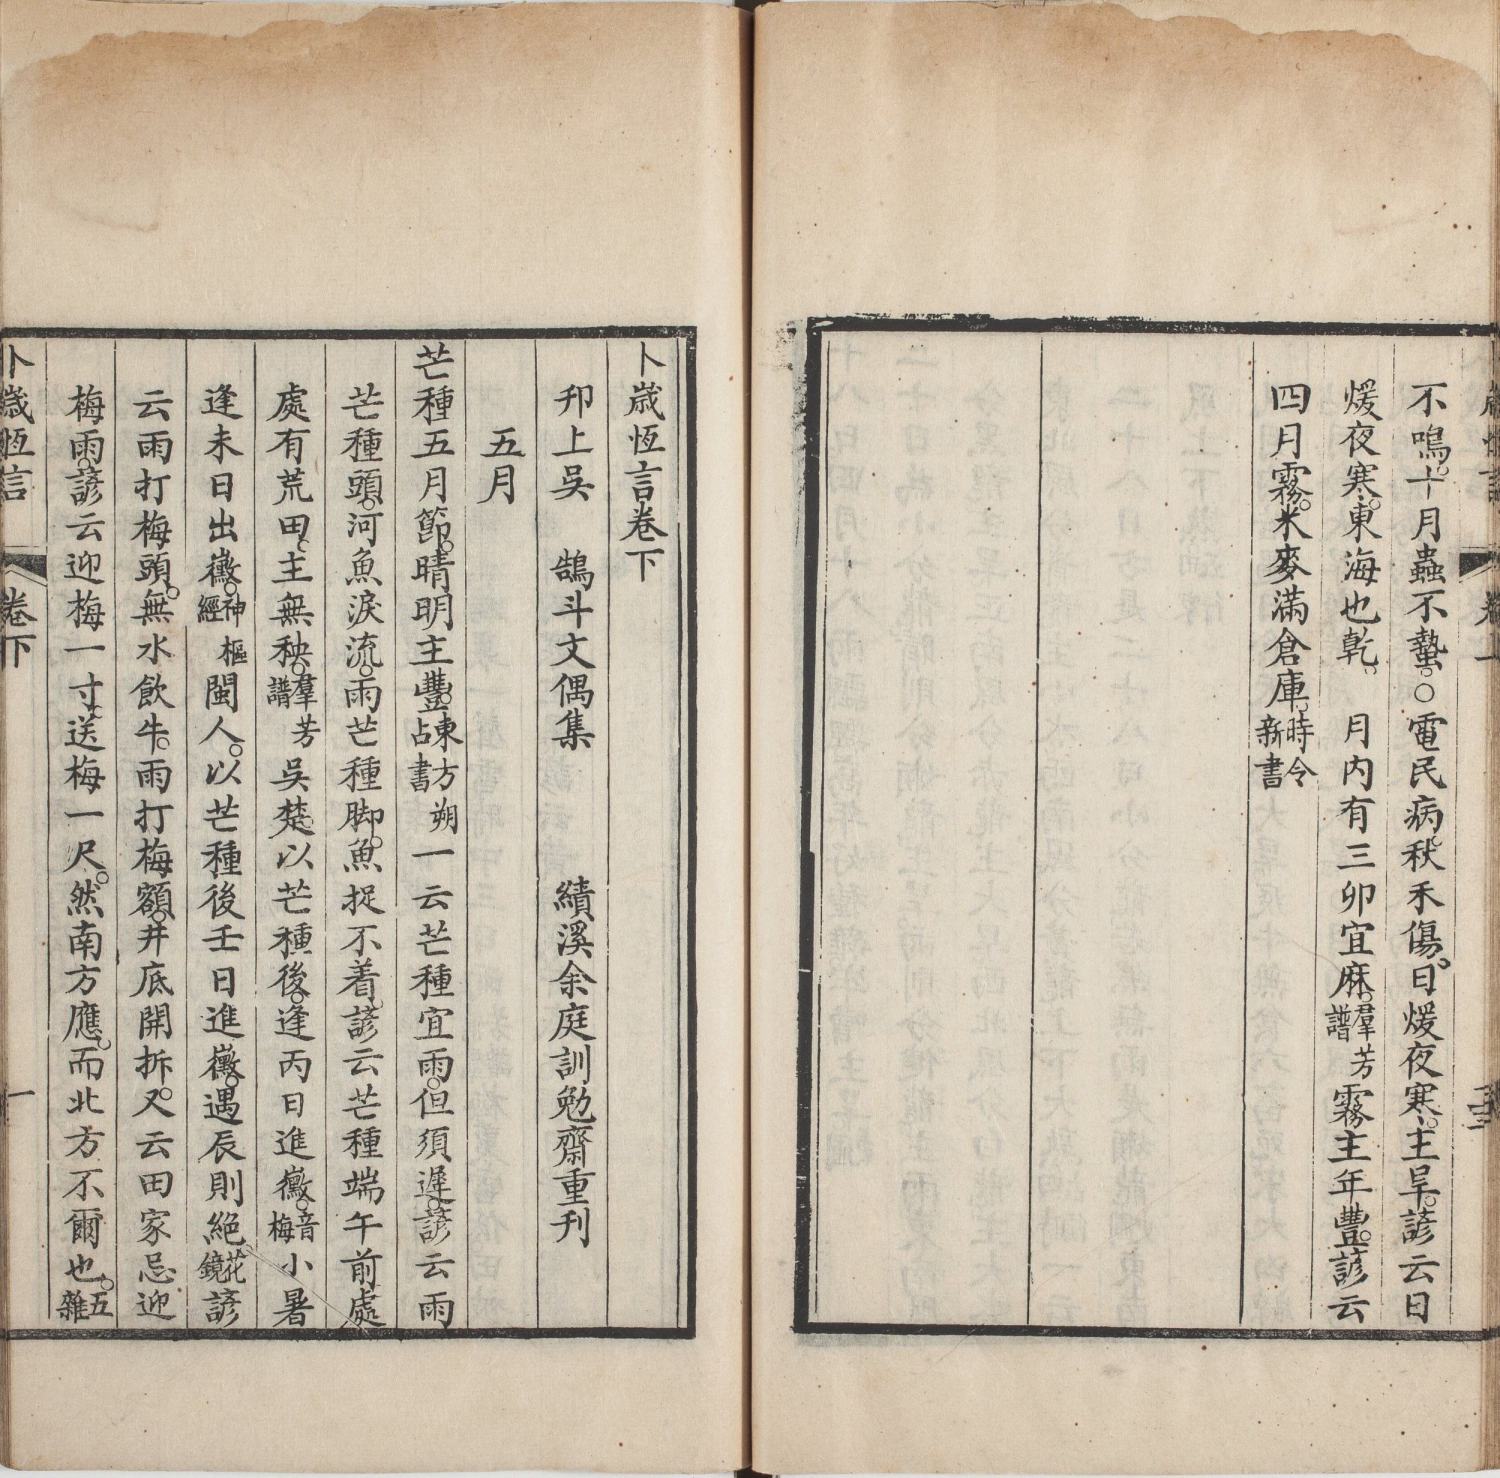 不鳴。十月蟲不蟄。○電民病。秋禾傷。日煖夜寒。主旱。諺云日
煖夜寒。東海也乾。　月内有三卯宜麻。羣芳譜霧主年豐。諺云
四月霧。米麥滿倉庫。時令新書
卜歲恆言卷下
邜上吳　鵠斗文偶集　績溪余庭訓勉齋重刊
五月
芒種五月節。晴明主豐。東方朔占書一云芒種宜雨。但須遲。諺云雨
芒種頭。河魚淚流。雨芒種脚。魚捉不着。諺云芒種端午前。處
處有荒田。主無秧。羣芳譜吳楚。以芒種後。逢丙日進黴。音梅小暑
逢未日出黴。神樞經閩人。以芒種後壬日進黴。遇辰則絕。花鏡諺
云雨打梅頭。無水飲牛。雨打梅額。井底開拆。又云田家忌迎
梅雨。諺云迎梅一寸。送梅一尺。然南方應。而北方不爾也。五雜
卜歲恆言　卷下　一